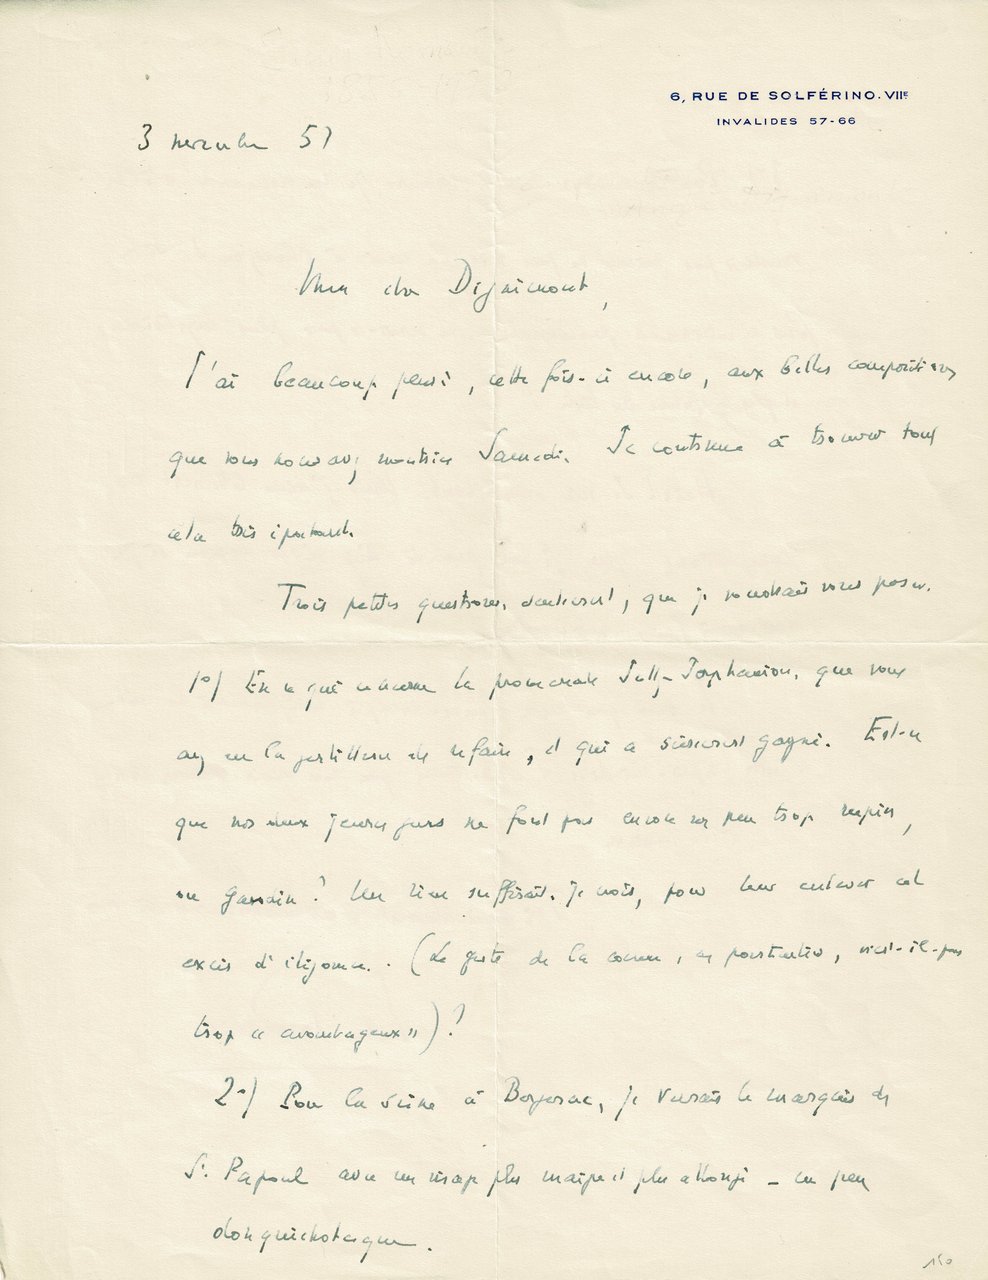 6, RUE DE SOLFÉRINO. VIIE
INVALIDES 57-66
3 novembre 57
Mon cher Dignimont,
J'ai beaucoup pensé, cette fois-ci encore, aux belles compositions
que vous nous avez montrées Samedi. Je continue à trouver tout
cela très épatant.
Trois petites questions, seulement, que je voudrais vous poser.
1°) En ce qui concerne la promenade Jully-Jerphanion, que vous
avez eu la gentillesse de refaire, et qui a sûrement gagné. Est-ce
que nos deux jeunes gens ne font pas encore un peu trop rupins,
ou gandin? Un rien suffirait, je crois, pour leur enlever cet
excès d'élégance. (Le geste de la canne, en particulier, n'est-il-pas
trop « avantageux »)?
2°) Pour la scène à Bergerac, je verrais le marquis de
St. Papoul avec un visage plus maigre et plus allongé - un peu
donquichotesque.
150